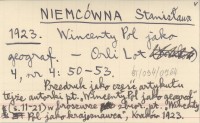 NIEMCÓWNA Stanisława
1923. Wincenty Pol jako
geograf. — Orli Lot
4, nr 4: 50-53.
Przedruk jako część artykułu
tejże autorki pt. „Wincenty Pol jako geograf"
(s. 11-21) w broszurze zbior. pt. „Wincenty
Pol jako krajoznawca", Kraków 1923.